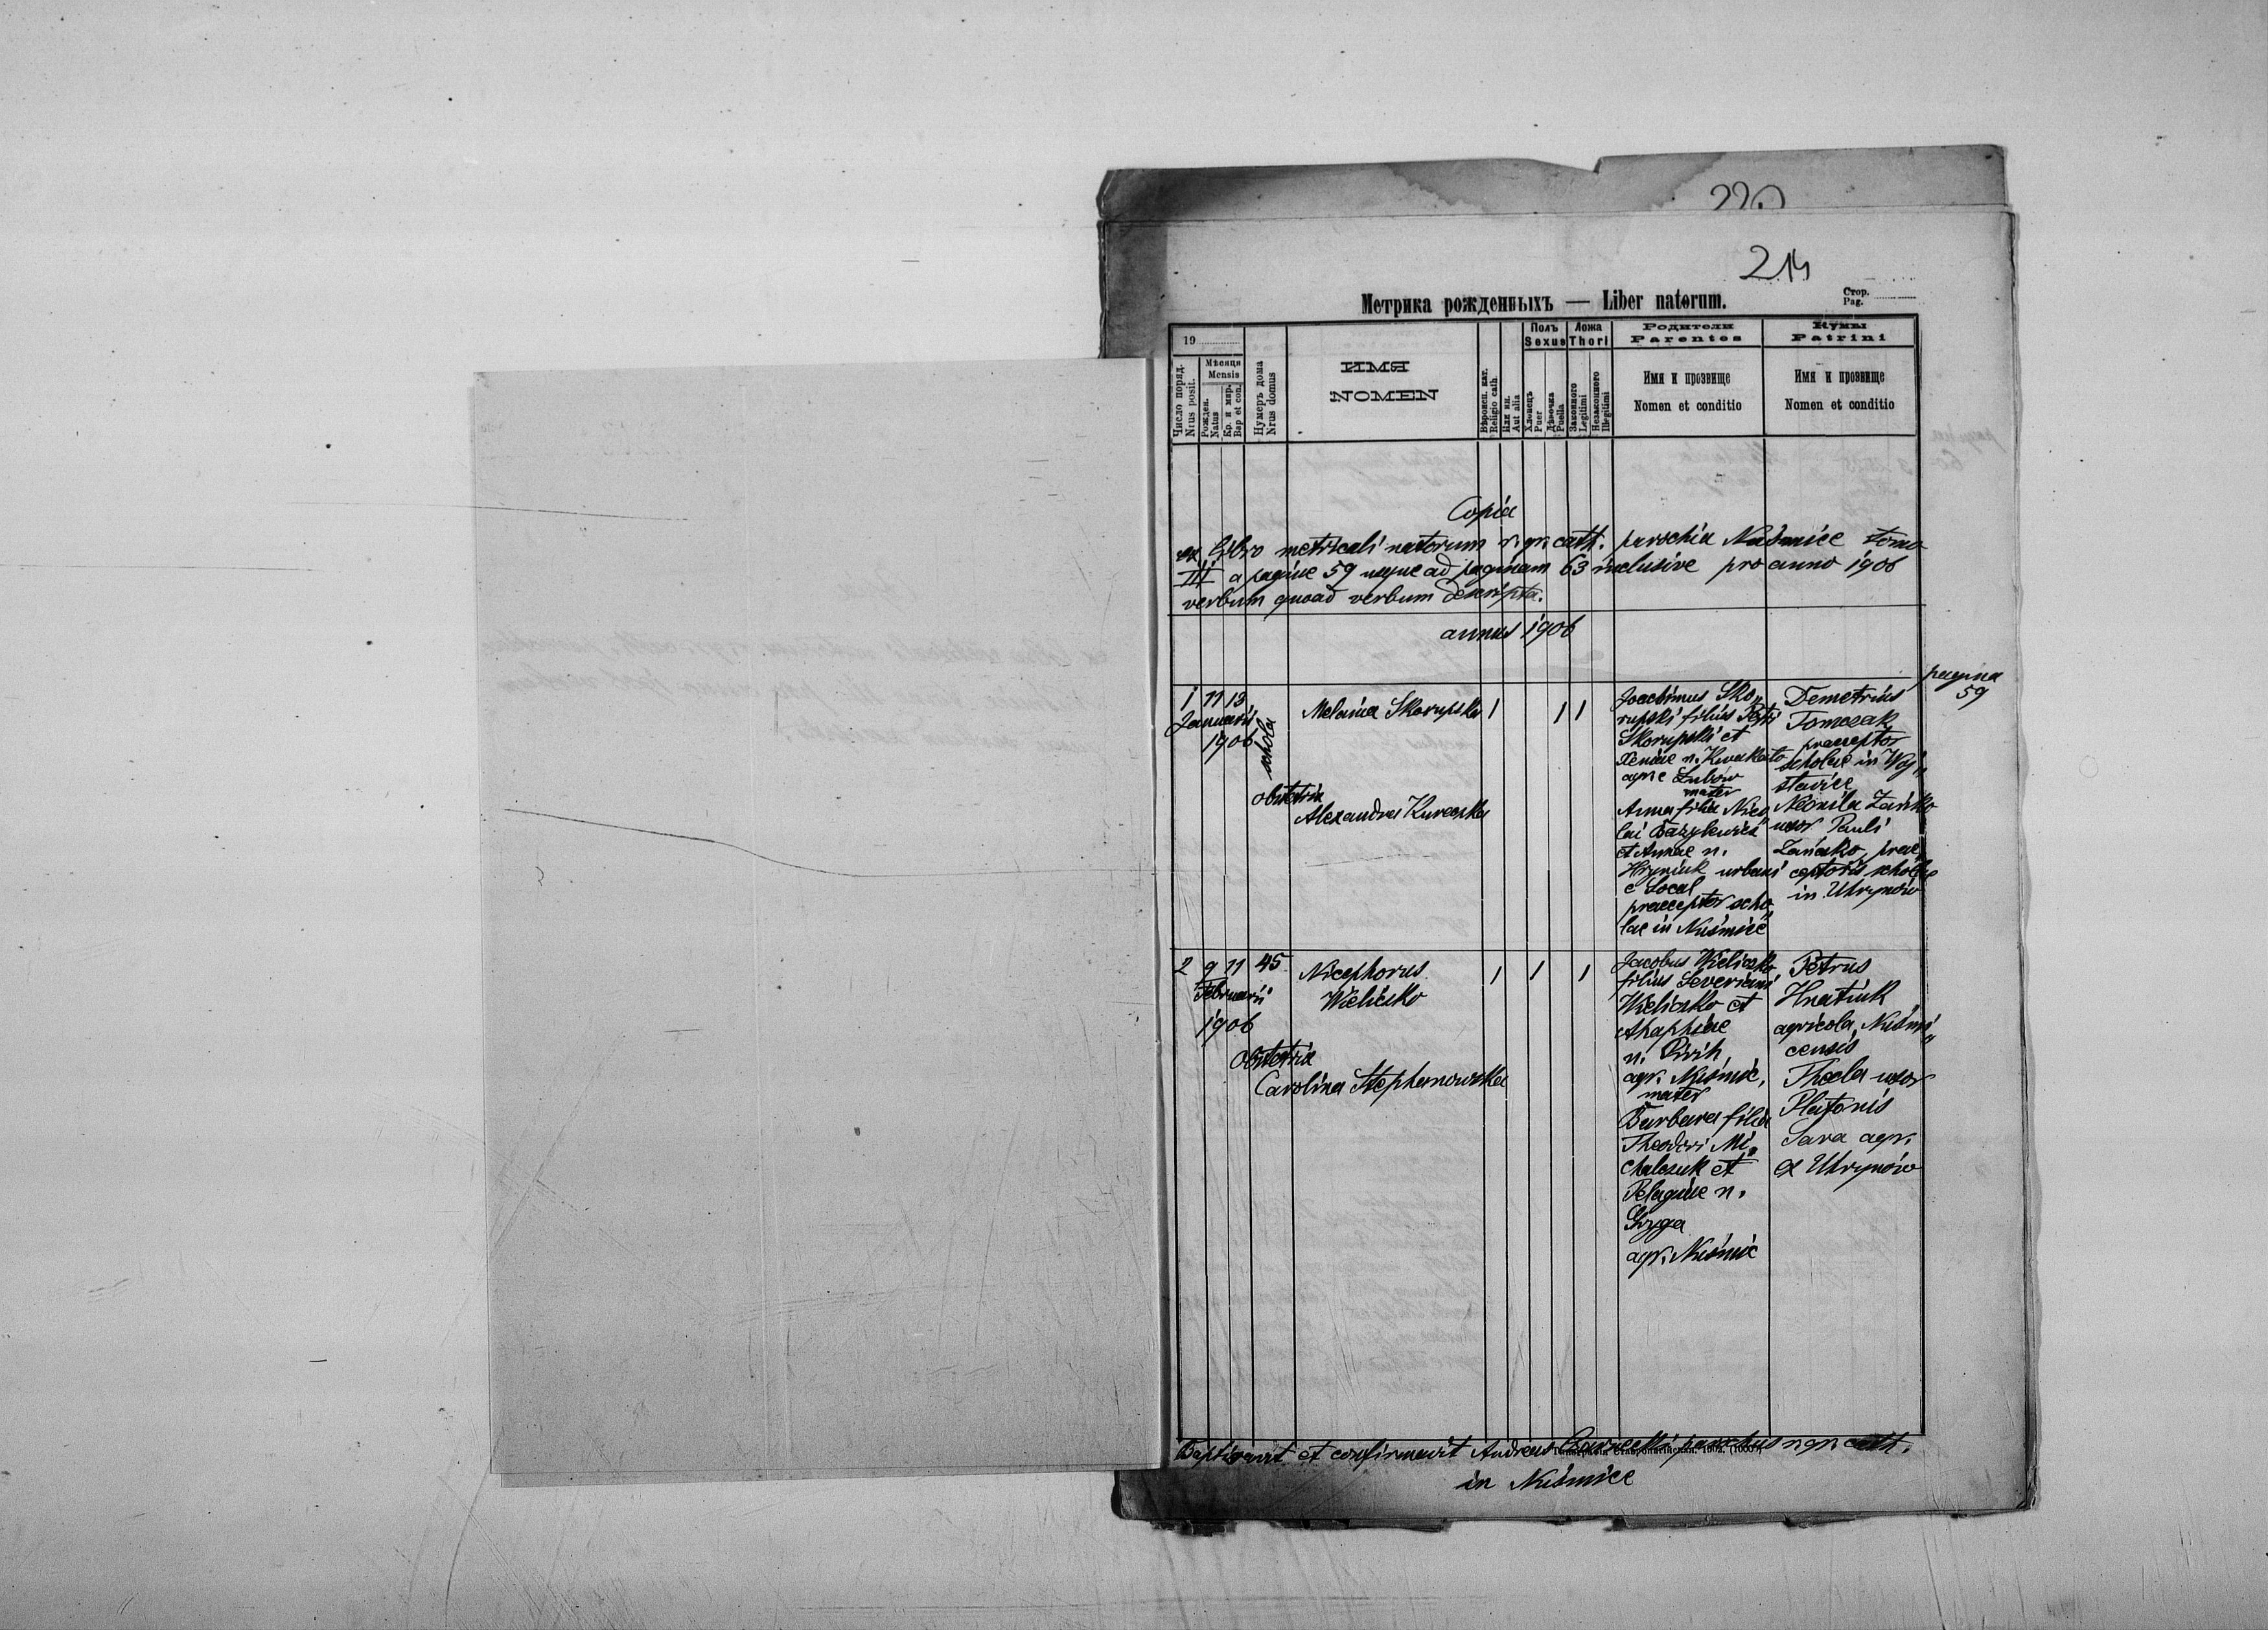 220
214
Метрика рожденныхъ — Liber natorum.
Стор.
Pag.
19
Число поряд.
Nrus posit.
Мѣсяця
Mensis
Рожден.
Natus
Кр. и мир.
Bap et con.
Нумеръ дома
Nrus domus
ИМЯ
NOMEN
Вѣроисп. кат.
Religio cath.
Или ин.
Aut alia
Полъ
Sexus
Хлопець
Puer
Дѣвочка
Puella
Ложа
Thori
Законного
Legitimi
Незаконного
Illegitimi
Родители
Parentes
Имя и прозвище
Nomen et conditio
Кумы
Patrini
Имя и прозвище
Nomen et conditio
Copia
ex Libro metricali natorum r. gr. cath. parochia Nuśmice tomo
III a pagine 59 usque ad paginam 63 inclusive pro anno 1906
verbum quoad verbum descripta.
annus 1906
pagina
59
1 11 13
Januarii
1906
schola
Melania Skorupska
1 1 1
obstetrix
Alexandra Kureczka
Joachimus Sko„
rupski filius Petri
Skorupski et
Xeniae n. Kwakato
agr. e Lubów
mater
Anna filia Nico„
lai Bazylewicz
et Annae n.
Hryniuk urbani
e Socal
praeceptor scho„
lae in Nuśmice
Demetrius
Tomczak
praeceptor
scholae in Waj„
stawice
Neonila Zańko
uxor Pauli
Zańko, prae„
ceptoris scholae
in Uhrynów
2 9 11 45
Februarii
1906
Nicephorus
Wieliczko
1 1 1
Obstetrix
Carolina Stephanowska
Jacobus Wieliczko
filius Severiani
Wieliczko et
Ahaphiae
n. Pirih,
agr. Nuśmic,
mater
Barbara filia
Theodori Mi„
chalczuk et
Pelagiae n.
Gryga
agr. Nuśmic
Petrus
Hnatiuk
agricola Nuśmi„
censis
Thecla uxor
Platonis
Sava agr.
ex Uhrynów
Baptizavit et confirmavit Andreas Czarnecki parochus r. gr. cath.
in Nuśmice